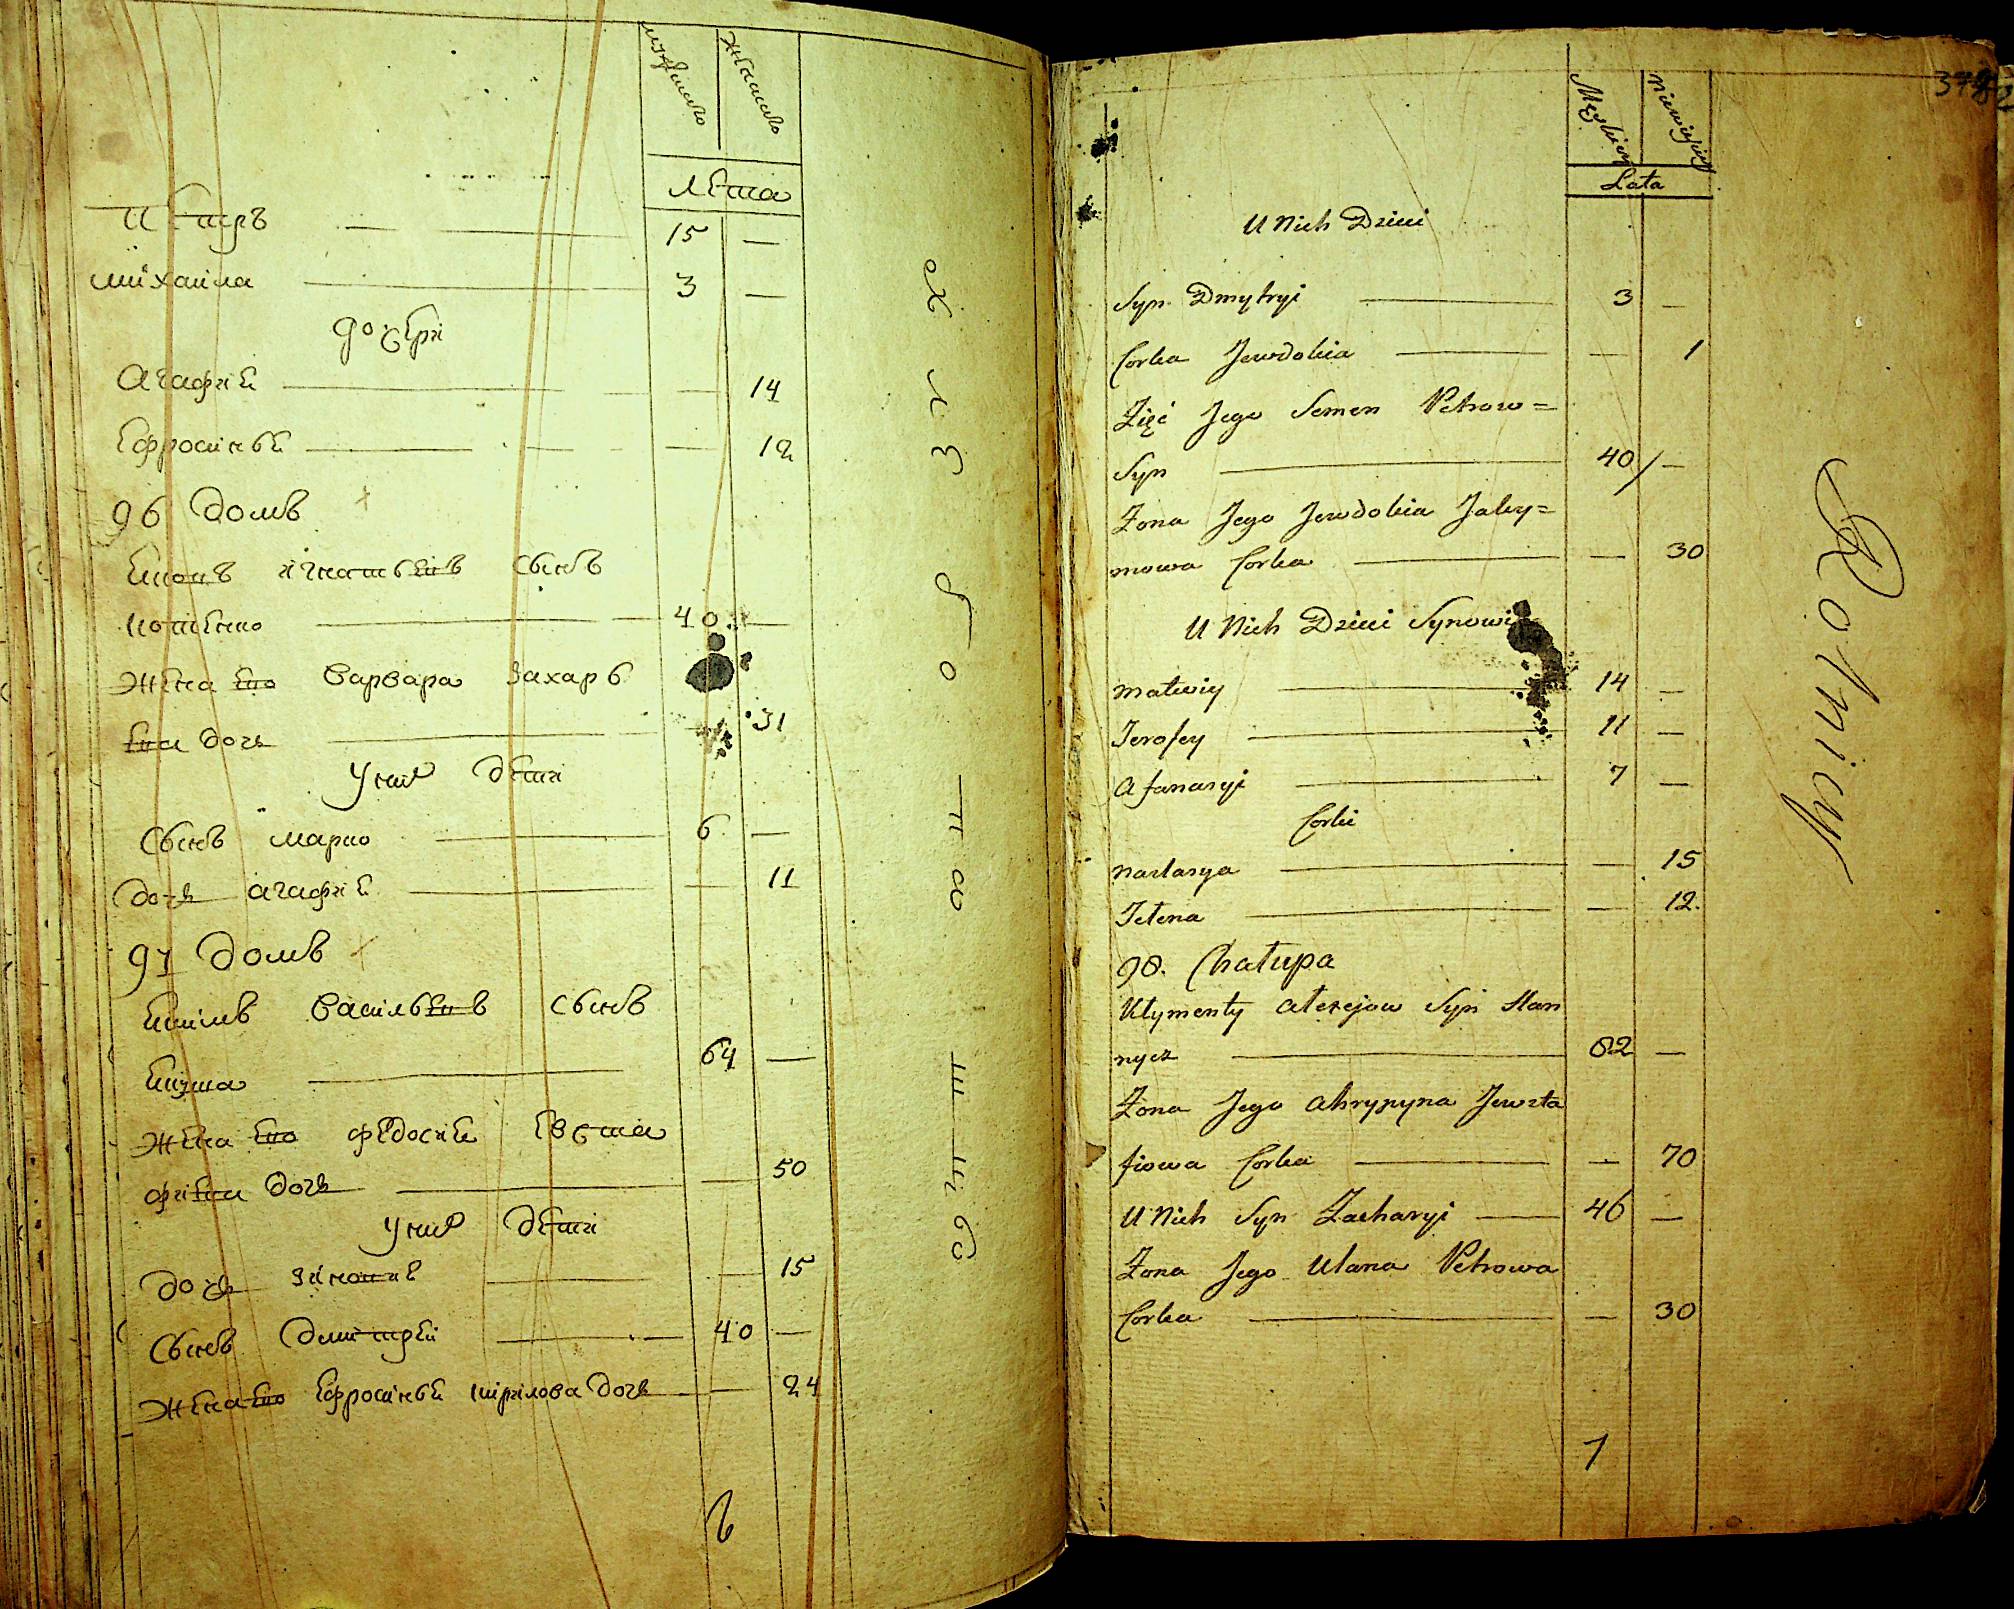 мужеска
женска
лета
Петръ — 15 —
Михаила — 3 —
дочери
Агафіе — — 14
Ефросінье — — 12
96 домъ
игнатьевъ сынъ
40 —
жена его варвара захарь
ева дочь — 31
у них дети
сынъ марко — 6 —
дочь агафіе — — 11
97 домъ
васильевъ сынъ
64 —
жена его федосие евста
фиева дочь — — 50
у них дети
дочь — — 15
сынъ дмитрей — 40 —
жена его ефросінье кірілова дочь — — 24
Męskiey
Niewieściey
Lata
U Nich Dzieci
Syn Dmytryi — 3 —
Corka Jewdokia — — 1
Zięć Jego Semen Petrow=
Syn — 40 —
Zona Jego Jewdokia Jaky=
mowa Corka — — 30
U Nich Dzieci Synowi
Matwiy — 14 —
Jerofey — 11 —
Afanasyi — 7 —
Corki
Nastasya — — 15
Jelena — — 12.
98. Chałupa
Klymenty Alexejow Syn Han
nycz — 82 —
Zona Jego Ahrypyna Jewsta
fiowa Corka — — 70
U Nich Syn Zacharyi — 46 —
Zona Jego Ulana Petrowa
Corka — — 30
7
Rolnicy